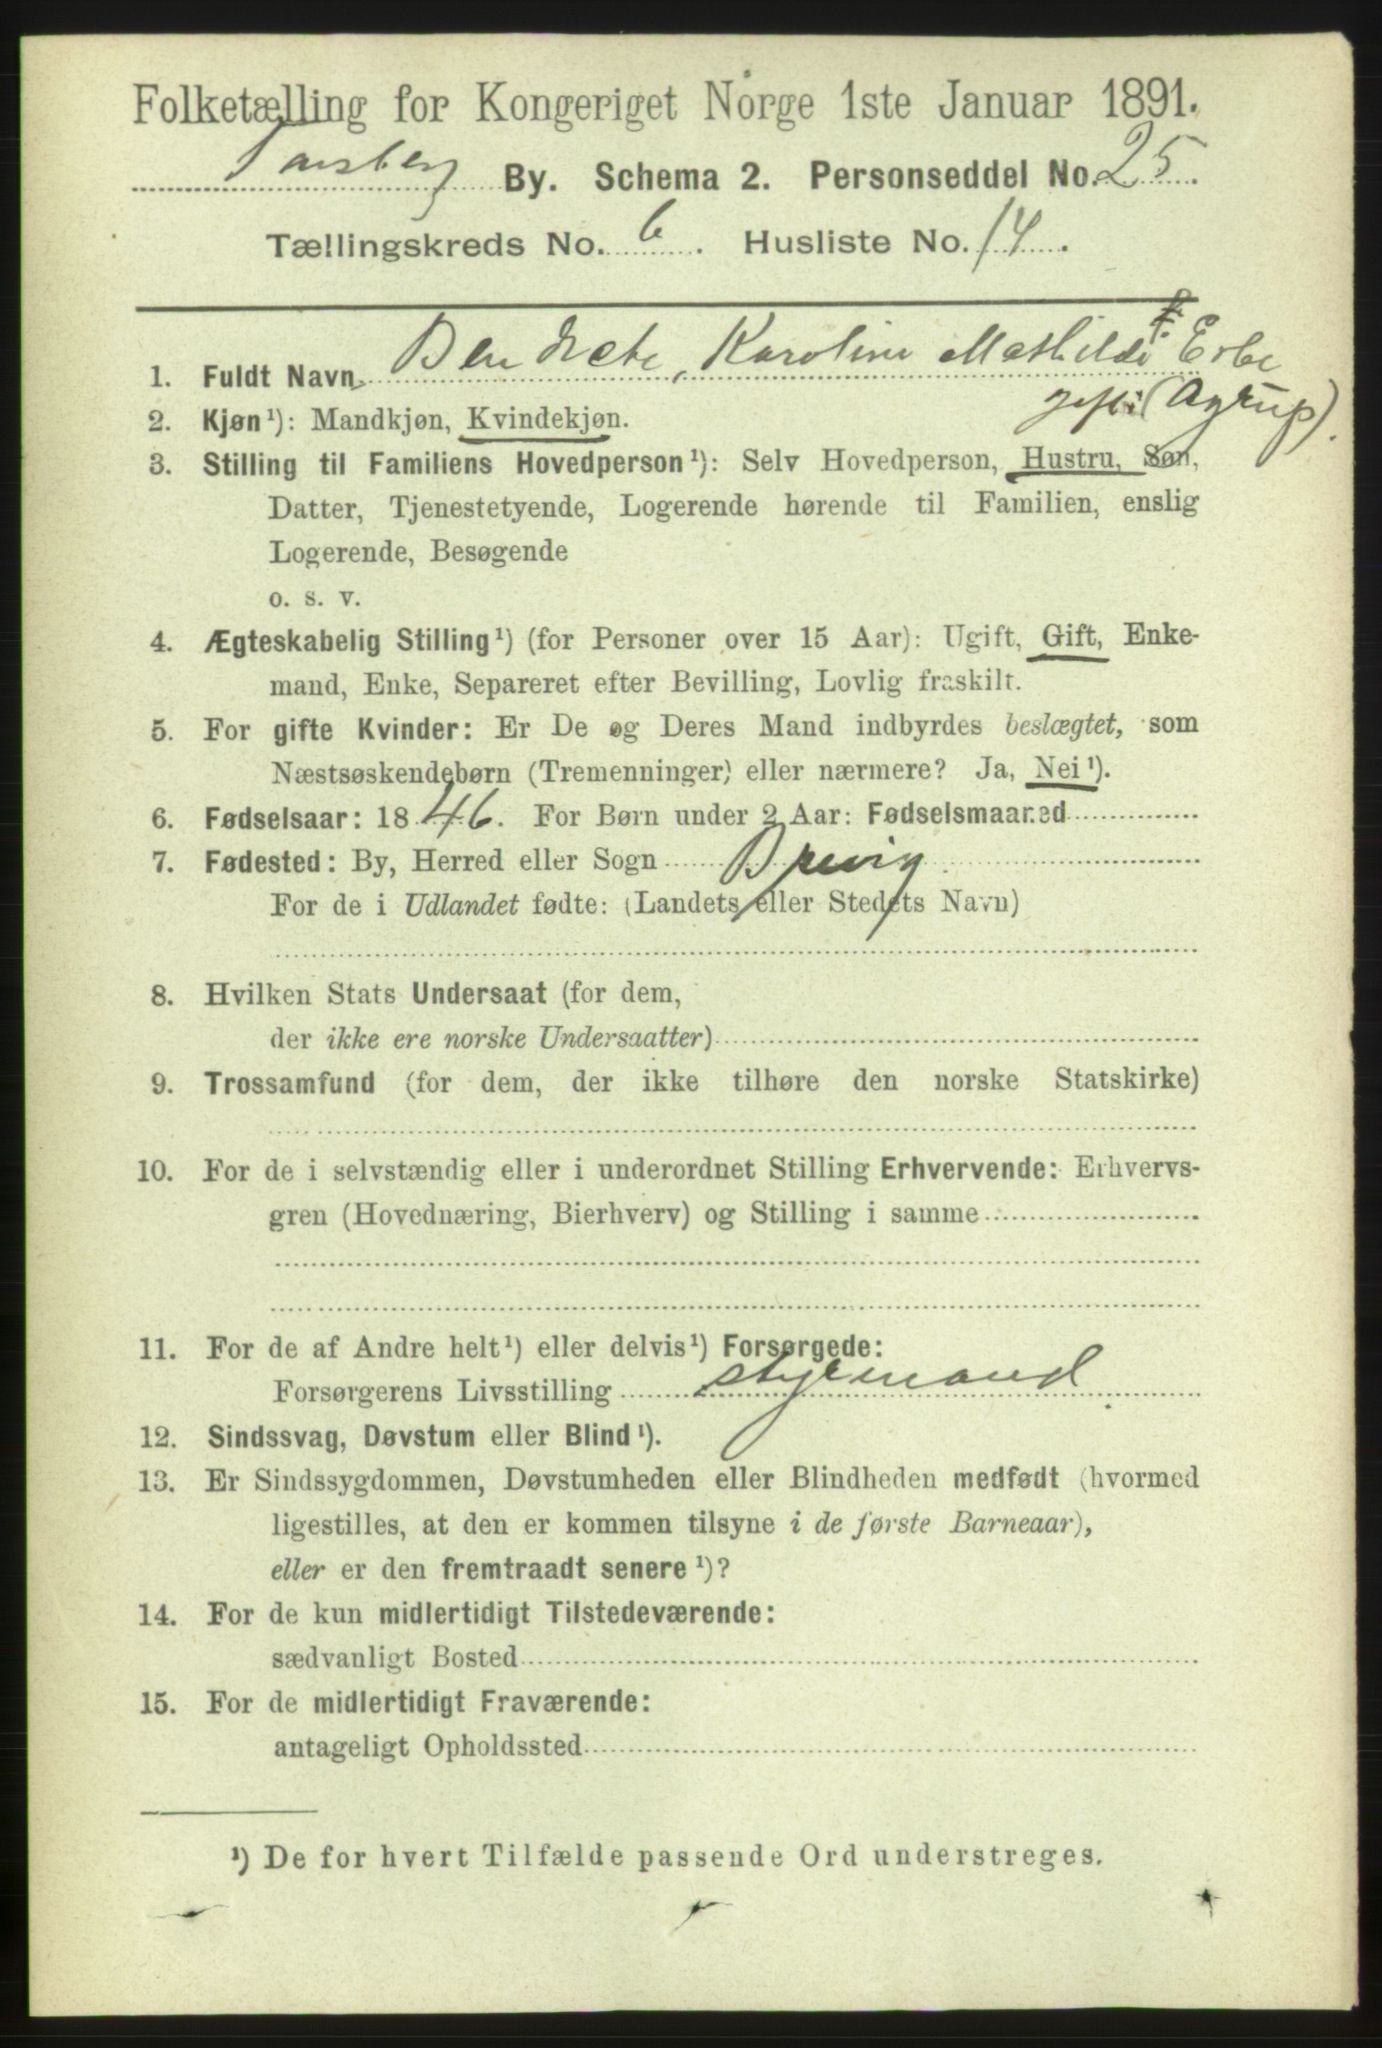 Folketælling for Kongeriget Norge 1ste Januar 1891.
Tønsberg By. Schema 2. Personseddel No. 25.
Tællingskreds No. 6. Husliste No. 14.
1. Fuldt Navn Bendicte, Karoline Mathilde F. Erbe
gift: (Agrup).
2. Kjøn¹): Mandkjøn, Kvindekjøn.
3. Stilling til Familiens Hovedperson¹): Selv Hovedperson, Hustru, Søn,
Datter, Tjenestetyende, Logerende hørende til Familien, enslig
Logerende, Besøgende
o. s. v.
4. Ægteskabelig Stilling¹) (for Personer over 15 Aar): Ugift, Gift, Enke-
mand, Enke, Separeret efter Bevilling, Lovlig fraskilt.
5. For gifte Kvinder: Er De og Deres Mand indbyrdes beslægtet, som
Næstsøskendebørn (Tremenninger) eller nærmere? Ja, Nei¹).
6. Fødselsaar: 1846. For Børn under 2 Aar: Fødselsmaaned
7. Fødested: By, Herred eller Sogn Brevig
For de i Udlandet fødte: (Landets eller Stedets Navn)
8. Hvilken Stats Undersaat (for dem,
der ikke ere norske Undersaatter)
9. Trossamfund (for dem, der ikke tilhøre den norske Statskirke)
10. For de i selvstændig eller i underordnet Stilling Erhvervende: Erhvervs-
gren (Hovednæring, Bierhverv) og Stilling i samme
11. For de af Andre helt¹) eller delvis¹) Forsørgede:
Forsørgerens Livsstilling styrmand.
12. Sindssvag, Døvstum eller Blind¹).
13. Er Sindssygdommen, Døvstumheden eller Blindheden medfødt (hvormed
ligestilles, at den er kommen tilsyne i de første Barneaar),
eller er den fremtraadt senere¹)?
14. For de kun midlertidigt Tilstedeværende:
sædvanligt Bosted
15. For de midlertidigt Fraværende:
antageligt Opholdssted
¹) De for hvert Tilfælde passende Ord understreges.